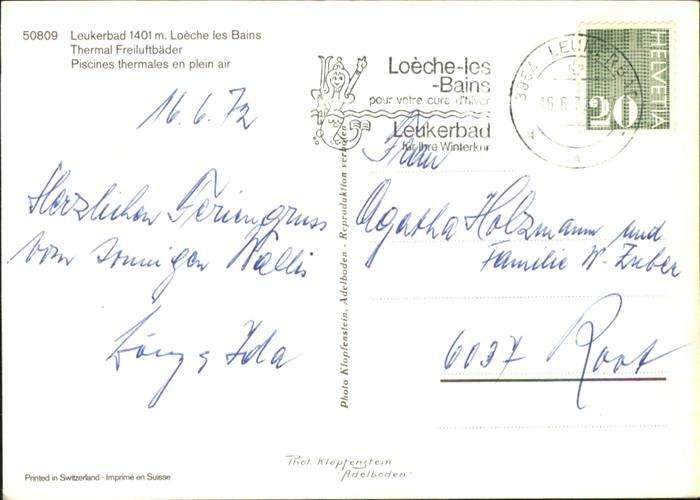 50809 Leukerbad 1401 m. Loèche les Bains
Thermal Freiluftbäder
Piscines thermales en plein air
16.6.72
Herzlichen Feriengruss
vom sonnigen Wallis
& Ida
Printed in Switzerland - Imprimé en Suisse
Photo Klopfenstein, Adelboden - Reproduktion verboten
Phot. Klopfenstein
"Adelboden"
Loèche-les
-Bains
pour votre cure d'hiver
Leukerbad
für Ihre Winterkur
3954 LEUKERBAD
16.6.72
HELVETIA
20
Frau
Agatha Holzmann und
Familie W. Zuber
6037 Root